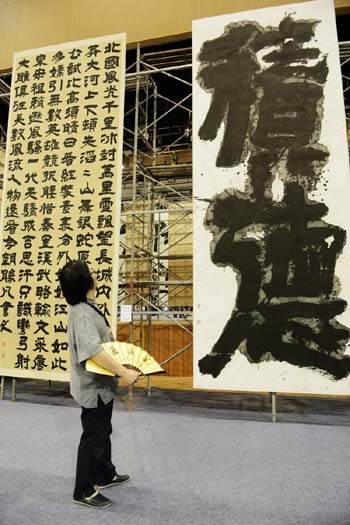 積德
北國風光千里冰封萬里雪飄望長城內外
莽大河上下頓失滔二山舞銀蛇原
公試比高須晴日看紅裝素裹分外妖嬈江山如此
多嬌引無數英雄競折腰惜秦皇漢武略輸文采唐
宗宋祖稍遜風騷一代天驕成吉思汗只識彎弓射
大雕俱往矣數風流人物還看今朝